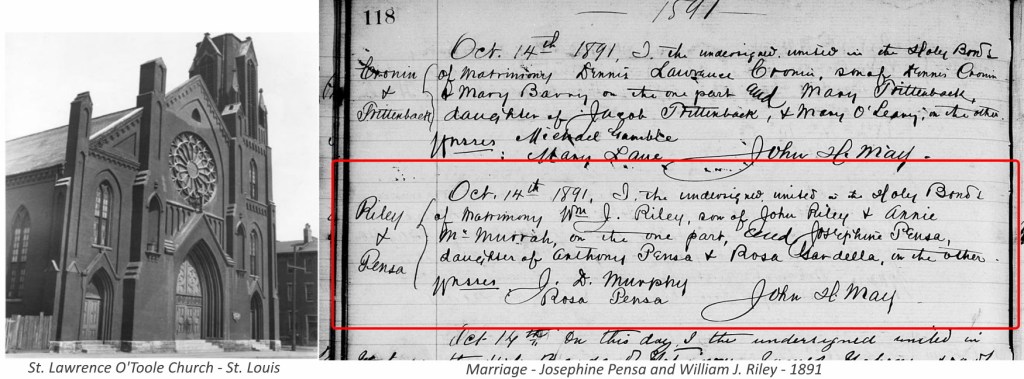 118
1891
Oct. 14th 1891, I. the undersigned, united in the Holy Bonds
Cronin of Matrimony Dennis Lawrance Cronin, son of Dennis Cronin
& & Mary Barry on the one part and Mary Trittenback,
Trittenback daughter of Jacob Trittenback, & Mary O'Leary, in the other.
Wnsses Michael Gamble
: Mary Lane John H. May.
Oct. 14th 1891, I. the undersigned, united in the Holy Bonds
Riley of Matrimony Wm J. Riley, son of John Riley & Annie
& McMurrah, on the one part, and Josephine Pensa,
Pensa daughter of Anthony Pensa & Rosa Gardella, in the other.
Wnsses. J. D. Murphy
Rosa Pensa John H. May
Oct 14th. On this day, I the undersigned united in
St. Lawrence O'Toole Church - St. Louis
Marriage - Josephine Pensa and William J. Riley - 1891